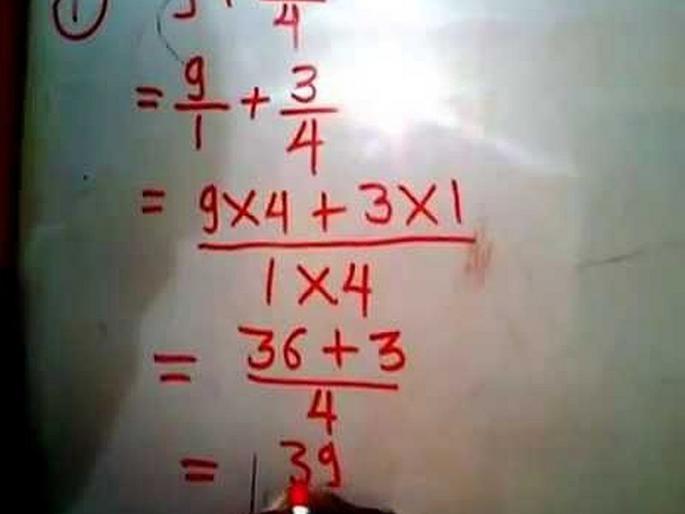 ① 9+ 3/4
= 9/1 + 3/4
= 9×4 + 3×1 / 1×4
= 36+3 / 4
= 39